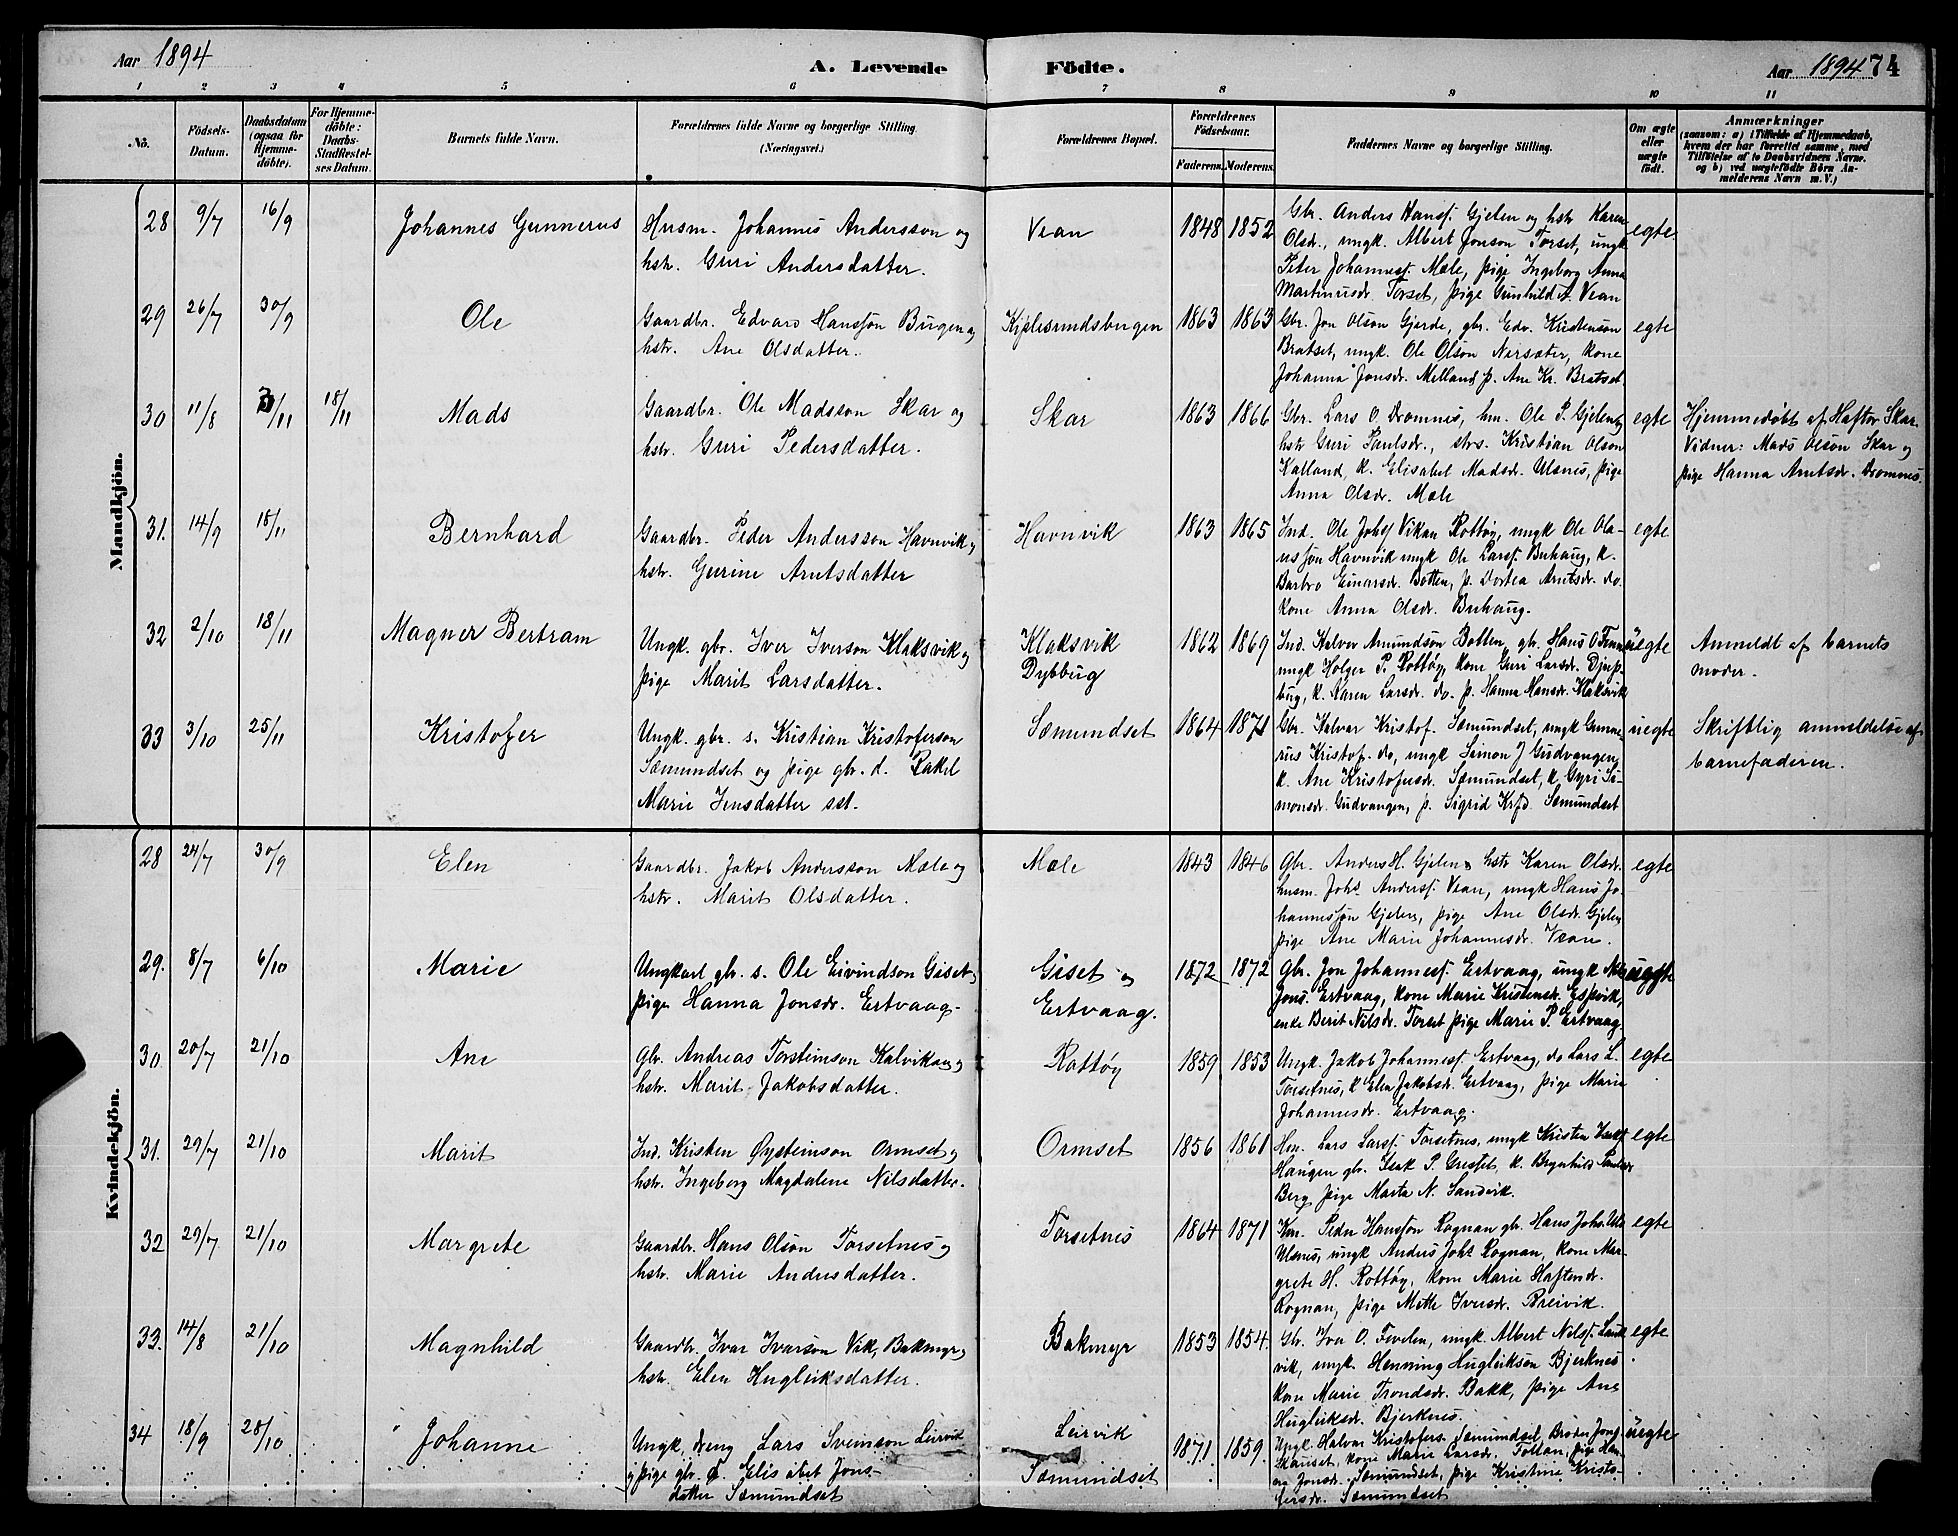 Aar 1894
A. Levende Födte.
Aar 1894 74
1 2 3 4 5 6 7 8 9 10 11
No.
Födsels-Datum.
Daabsdatum (ogsaa for Hjemmedöbte).
For Hjemmedöbte: Daabs-Stadfæstelses Datum.
Barnets fulde Navn.
Forældrenes fulde Navne og borgerlige Stilling.
(Næringsvei.)
Forældrenes Bopæl.
Forældrenes Födselsaar.
Faderens. Moderens.
Faddernes Navne og borgerlige Stilling.
Om ægte eller uægte födt.
Anmærkninger
(saasom: a) i Tilfælde af Hjemmedaab,
hvem der har forrettet samme, med
Tilföielse af to Daabsvidners Navne,
og b) ved uægtefödte Börn Anmelderens Navn m. V.)
Mandkjön.
28 9/7 16/9 Johannes Gunnerus
Husm. Johannes Andersson og
hstr. Guri Andersdatter.
Vean 1848 1852
Gbr. Anders Hansf. Gjelen og hstr Karen
Olsdr., ungk. Albert Jonson Torset, ungk
Peter Johannesf. Mæle, pige Ingeborg Anna
Martinusdr. Torset, pige Gunhild A. Vean
egte.
29 26/7 30/9 Ole
Gaardbr. Edvard Hansson Bugen og
hstr. Ane Olsdatter.
Kjelesundsbugen 1863 1863
Gbr. Jon Olson Gjerde, gbr. Edv. Kristenson
Bratset, ungk. Ole Olson Nersæter, kone
Johanna Jonsdr. Melland p. Ane Kr. Bratset
egte
30 11/8 3/11 18/11 Mads
Gaardbr. Ole Madsson Skar og
hstr. Guri Pedersdatter.
Skar 1863 1866
Gbr. Lars O Dromnes, hm. Ole P. Gjelen og
hstr Guri Paulsdr., strs. Kristian Olson
Kalland, k. Elisabet Madsdr. Ulsnes, pige
Anna Olsdr. Mæle
egte
Hjemmedøbt af Haftor Skar.
Vidner: Mads Olson Skar og
pige Hanna Arntsdr. Dromnes.
31. 14/9 18/11 Bernhard
Gaardbr. Peder Andersson Havnvik og
hstr. Gurine Arntsdatter
Havnvik 1863 1865
Ind. Ole Johs Vikan Rottøy, ungk Ole Ola-
usson Havnvik ungk Ole Larsf. Buhaug, k.
Barbro Einarsdr. Botten, p. Dortea Arntsdr. do.
kone Anna Olsdr. Buhaug.
egte
32 2/10 18/11 Magner Bertram
Ungk. gbr. Iver Iverson Klaksvik og
pige Marit Larsdatter.
Klaksvik
Dybbug
1862 1869
Ind. Halvor Amundson Botten, gbr. Hans O
ungk Holger P. Rottøy, kone Guri Larsdr. Djup-
bug, k. Karen Larsdr. do. p. Hanna Hansdr. Klaksvik
uegte
Anmeldt af barnets
moder.
33 3/10 25/11 Kristofer
Ungk. gbr. s. Kristian Kristoferson
Sæmundset og pige gbr. d. Rakel
Marie Jensdatter sst.
Sæmundset 1864 1871
Gbr. Halvar Kristof. Sæmundset, ungk Gunne-
rus Kristof. do, ungk Simon J Gudvangen,
k. Ane Kristofersdr. Sæmundset, k Gyri Si-
monsdr. Gudvangen, p. Sigrid Krfd. Sæmundset
uegte
Skriftlig anmeldelse af
barnefaderen.
Kvindekjön.
28 24/7 30/9 Elen
Gaardbr. Jakob Andersson Mæle og
hstr. Marit Olsdatter.
Mæle 1843 1846
Gbr. Anders H. Gjelen og hstr Karen Olsdr.
husm. Johs Andersf. Vean, ungk Hans Jo-
hannesson Gjelen, pige Ane Olsdr. Gjelen,
pige Ane Marie Johannesdr. Vean.
egte
29. 8/7 6/10 Marie
Ungkarl gbr. s. Ole Eivindson Giset og
pige Hanna Jonsdr. Ertvaag.
Giset og
Ertvaag.
1872 1872
Gbr. Jon Johannesf. Ertvaag, ungk
Jons. Ertvaag, kone Marie Kristensdr. Espvik,
enke Berit Nilsdr. Torset pige Marie P. Ertvaag.
uegte
30 20/7 21/10 Ane
Gbr. Andreas Torsteinson Kalvikan og
hstr. Marit Jakobsdatter.
Rottøy 1859 1853
Ungk. Jakob Johannesf. Ertvaag, do Lars L.
Torsetnes, k Elen Jakobsdr. Ertvaag, pige Marie
Johannesdr. Ertvaag.
egte
31. 29/7 21/10 Marit
Ind. Kristen Øysteinson Ormset og
hstr. Ingeborg Magdalene Nilsdatter.
Ormset 1856 1861
Hm. Lars Larsf. Torsetnes, ungk Kristen
Haugen gbr. Isak P. Gresset, k. Brynhild Paulsdr
Berg, pige Marta N. Sandvik.
egte
32 29/7 21/10 Margrete
Gaardbr. Hans Olson Torsetnes og
hstr. Marie Andersdatter.
Torsetnes 1864 1871
Peder Hansson Rognan gbr. Hans Johs.
Ulsnes, ungk Anders Johs Rognan, kone Mar-
grete H. Rottøy, kone Marie Haftordr.
Rognan, pige Mette Iversdr. Breivik.
egte
33. 14/8 21/10 Magnhild
Gaardbr. Ivar Ivarson Vik, Bakmyr og
hstr. Elen Hugleiksdatter.
Bakmyr 1853 1854.
Gbr. Iva O. Fevelen, ungk. Albert Nilsf.
vik, ungk. Henning Hugleiksen Bjerknes
kone Marie Trondsdr. Bakk, pige Ane
Hugleiksdr. Bjerknes.
egte
34 18/9 28/10 Johanne
Ungk, dreng Lars Sveinson Leirvik
og pige gbr. d. Elisabet Jons-
datter Sæmundset
Leirvik
Sæmundset
1871. 1859.
Ungk. Halvar Kristofers. Sæmundset, Broder Jonf
Skauset, kone Marie Larsdr. Tollan, pige Han-
na Jonsdr. Sæmundset, pige Kristine Kristo-
fersdr. Sæmundset
uegte